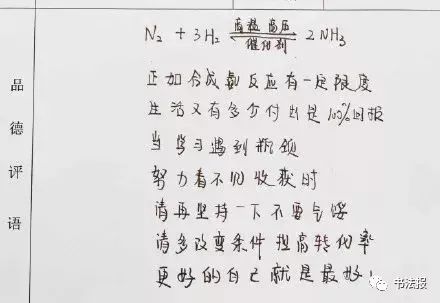 N₂ + 3H₂ 高温 高压 催化剂 ⇌ 2NH₃
品德评语
正如合成氨反应有一定限度
生活又有多少付出是100%回报
当学习遇到瓶颈
努力看不见收获时
请再坚持一下不要气馁
请多改变条件 提高转化率
更好的自己就是最好!
书法报